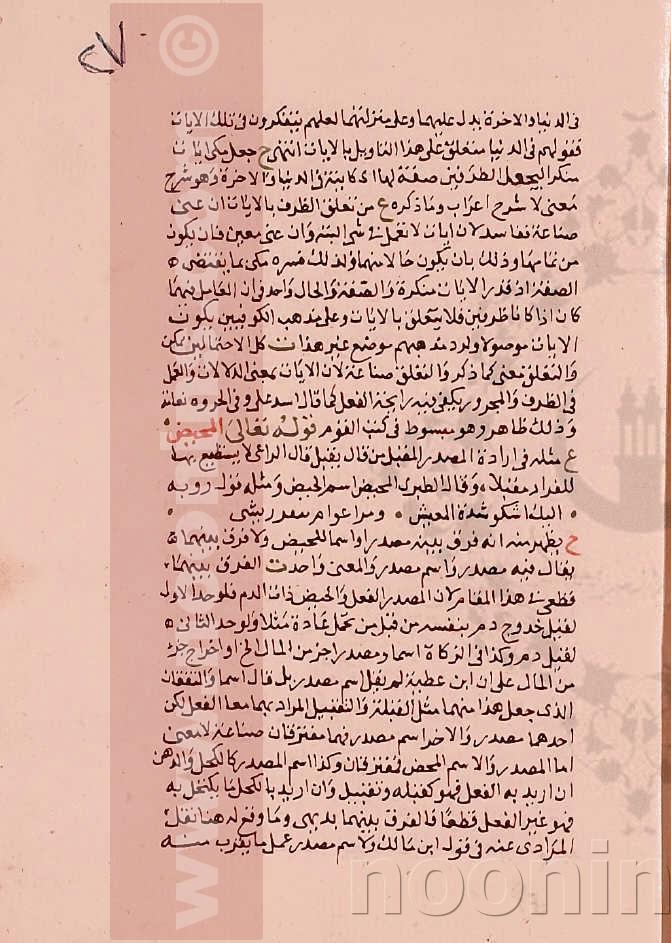 ٢٧
في الدنيا والاخرة يدل عليهما وعلى منزلتهما لعلهم يتفكرون في تلك الايات
فقولهم في الدنيا متعلق على هذا التاويل بالايات انتهى ح جعل مكي ايات
منكرا ليجعل الظرفين صفة لها اي كاينة في الدنيا والاخرة وهو شرح
معنى لا شرح اعراب وما ذكره ع من تعلق الظرف بالايات ان عنى
صناعة ففاسد لان ايات لا تعمل في شي البتة وان عنى معنى فان يكون
من تمامها وذلك بان يكون حالا منها ولذلك فسره مكي بما يقتضي
الصفة اذ قدر الايات منكرة والصفة والحال واحد في ان العامل فيهما
كان اذا كانا ظرفين فلا يتعلق بالايات وعلى مذهب الكوفيين يكون
الايات موصولا ولرد مذهبهم موضع غير هذا ت كل الاحتمالين ممكن
والتعلق معنى كما ذكر والتعلق صناعة لان الايات بمعنى الدلالات والعمل
في الظرف والمجرور يكفي فيه رايحة الفعل كما قال اسد علي وفي الحروب نعامة
وذلك ظاهر وهو مبسوط في كتب القوم قوله تعالى المحيض
ع مثله في ارادة المصدر المقيل من قال يقيل قال الراعي لا يستطيع بها
للقراد مقيلا، وقال الطبري المحيض اسم الحيض ومثله قول روبه
اليك اشكو شدة المعيش ومر اعوام
ح يظهر منه انه فرق بين مصدرا واسما للحيض ولا فرق بينهما
يقال فيه مصدر واسم مصدر والمعنى واحد ت الفرق بينهما
قطعي في هذا المقام لان المصدر الفعل والحيض ذات الدم فلو حد الاول
لقيل خروج دم بنفسه من قبل من تحمل عادة مثلا ولو حد الثاني
لقيل دم وكذا في الزكاة اسما ومصدرا جزء من المال الخ او اخراج جزء
من المال على ان ابن عطية لم يقل اسم مصدر بل قال اسم
الذي جعل هذا منهما مثل القبلة والتقبيل المراد بهما معا الفعل لكن
احدهما مصدر والاخر اسم مصدر فهما مفترقان صناعة لا معنى
اما المصدر والاسم المحض فمفترقان وكذا اسم المصدر كالكحل والدهن
ان اريد به الفعل فهو كقبله وتقبيل وان اريد بالكحل ما يكتحل به
فهو غير الفعل قطعا فالفرق بينهما بديهي وما وقع له هنا نقل
المرادي عنه في قول ابن مالك ولاسم مصدر عمل ما يقرب منه
noonin